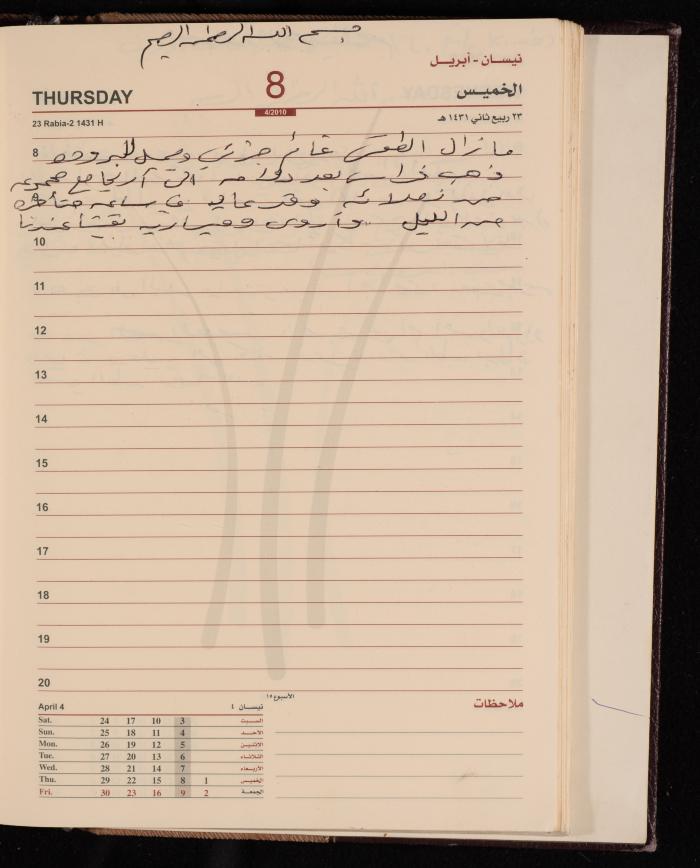 بسم الله الرحمن الرحيم
نيسان - أبريل
THURSDAY 8 الخميس
4/2010
23 Rabia-2 1431 H ٢٣ ربيع ثاني ١٤٣١ هـ
8 ما زال الطقس غائم جزئي ويميل للبروده
ذهب فراس بعد دوامه الى أريحا مع مجموعه
من زملائه وقد عاد في ساعه متأخره
من الليل وأروى وميساريه تعشا عندنا
10
11
12
13
14
15
16
17
18
19
20
الأسبوع ١٥
April 4 نيسـان ٤ ملاحظات
Sat. 24 17 10 3 السبت
Sun. 25 18 11 4 الأحد
Mon. 26 19 12 5 الاثنين
Tue. 27 20 13 6 الثلاثاء
Wed. 28 21 14 7 الأربعاء
Thu. 29 22 15 8 1 الخميس
Fri. 30 23 16 9 2 الجمعة